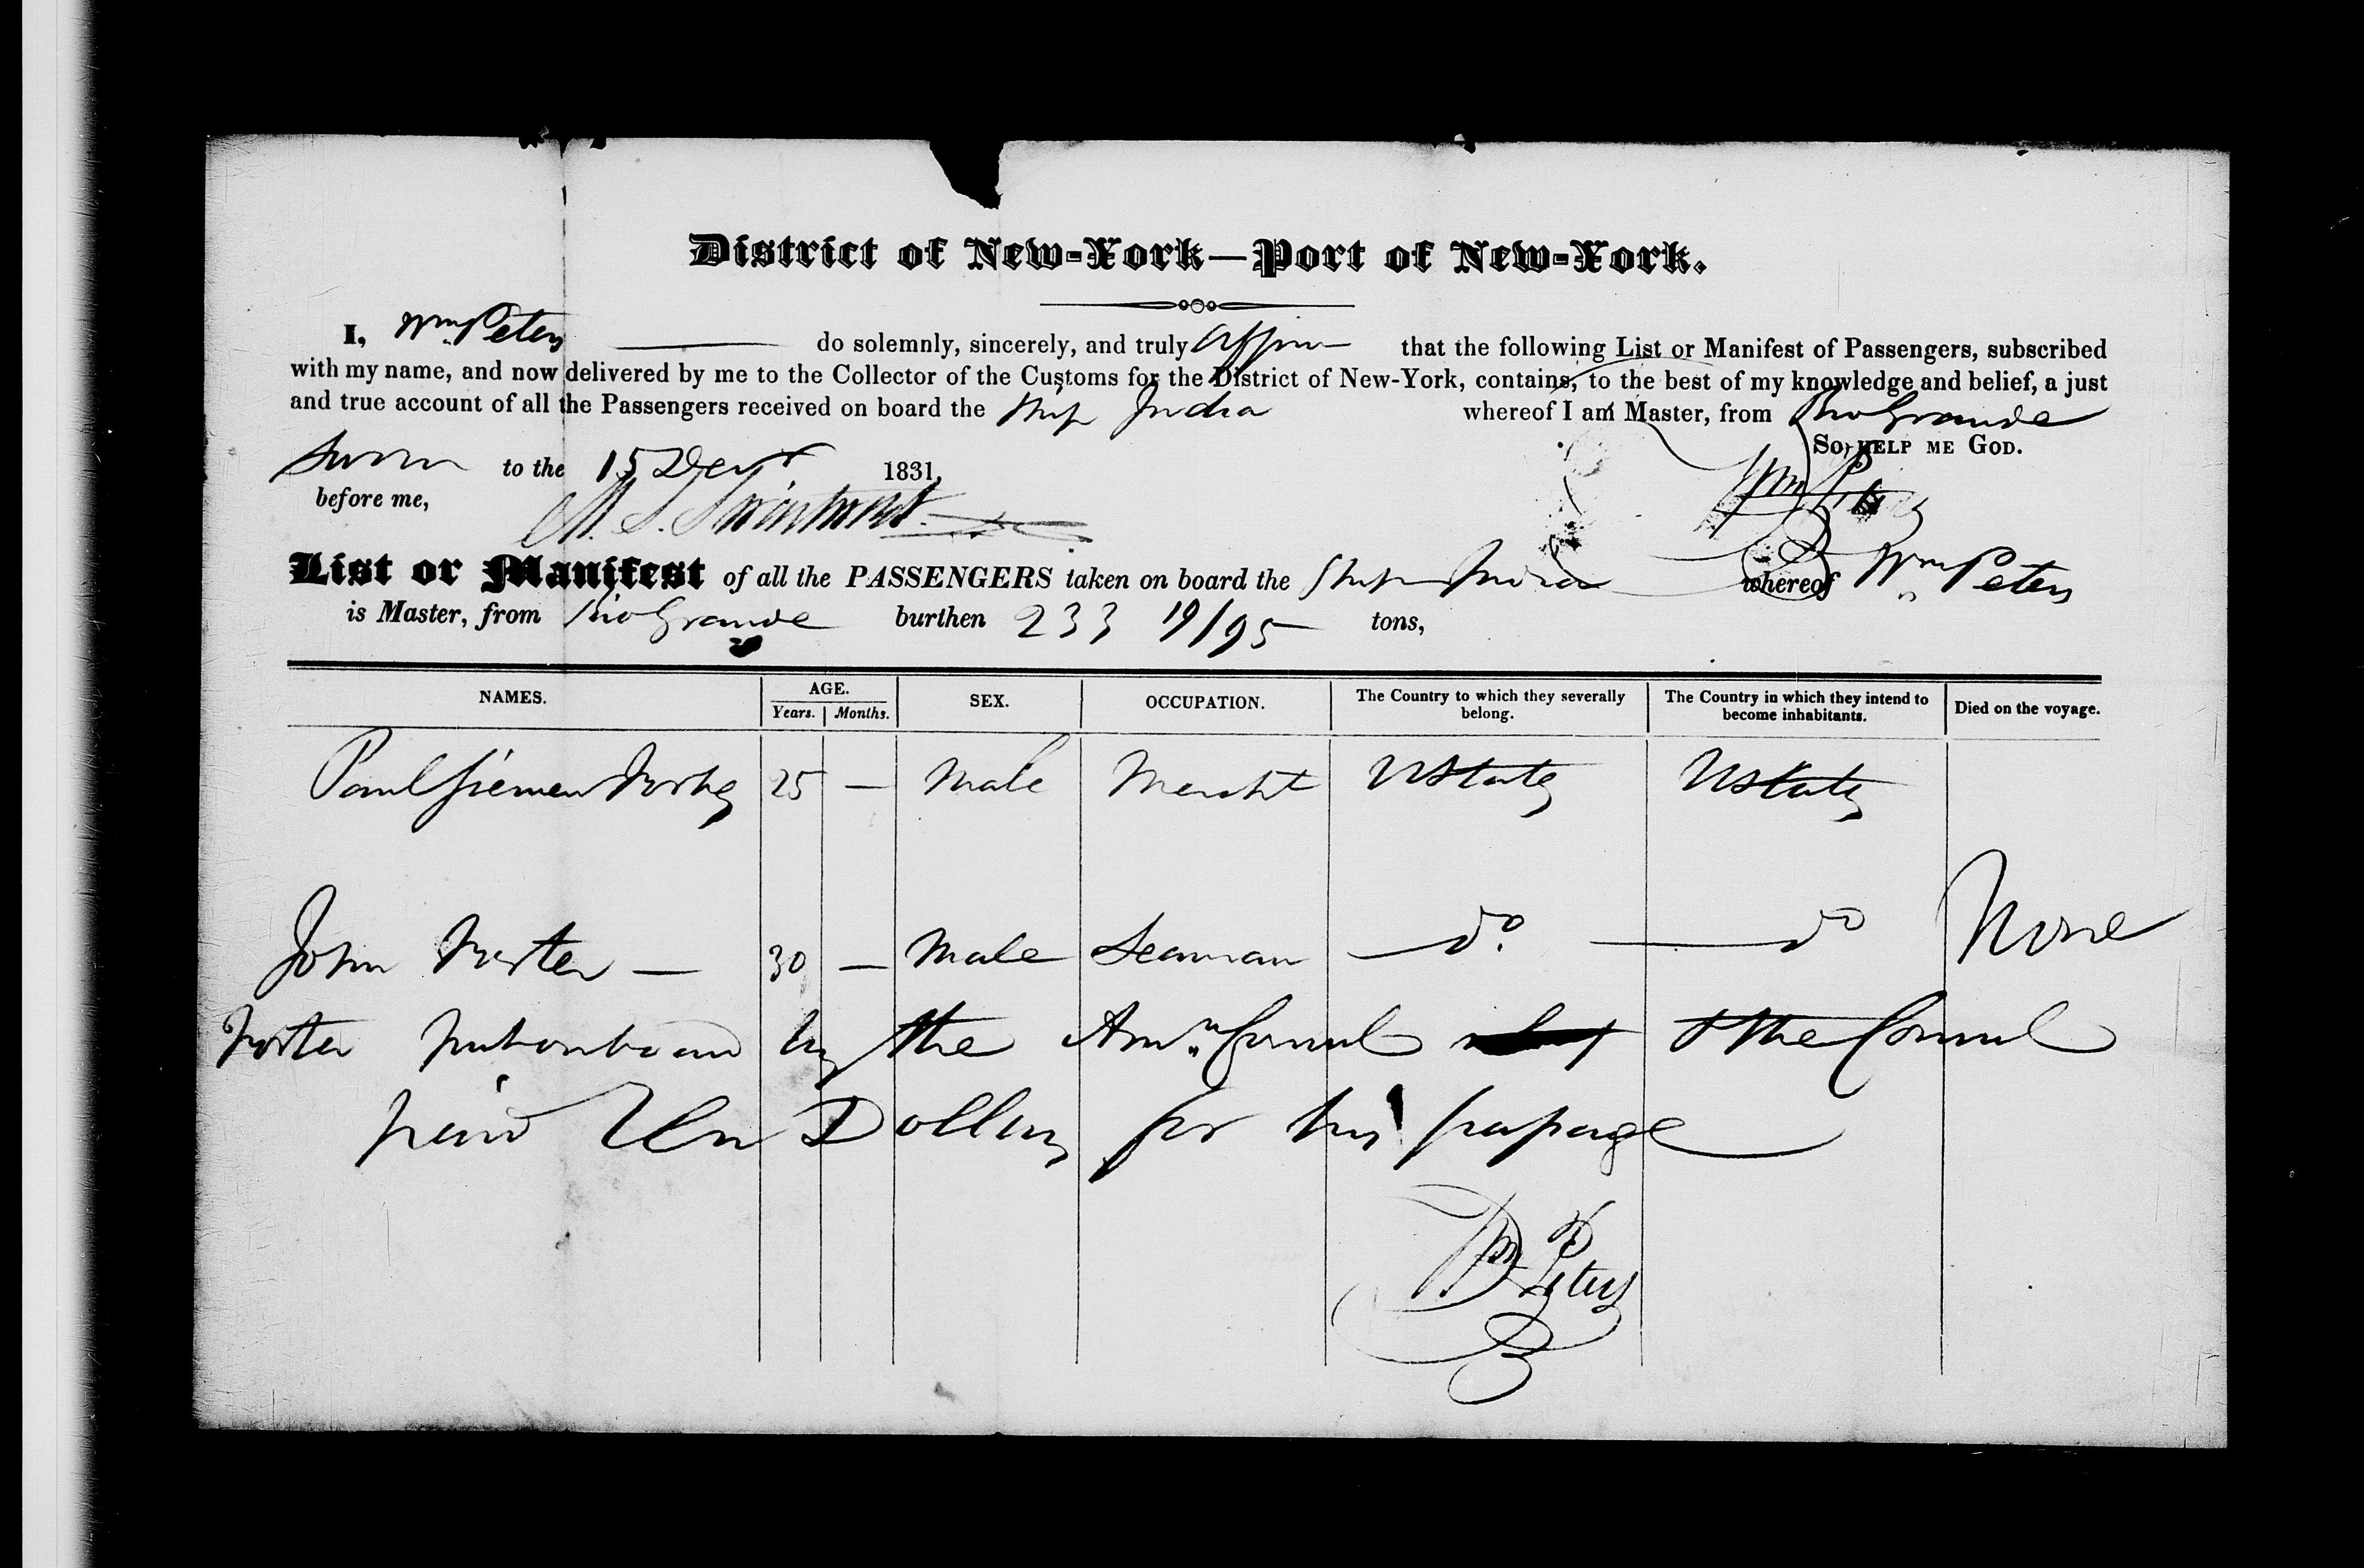 District of New-York—Port of New-York.
I, Wm. Peters do solemnly, sincerely, and truly affirm that the following List or Manifest of Passengers, subscribed
with my name, and now delivered by me to the Collector of the Customs for the District of New-York, contains, to the best of my knowledge and belief, a just
and true account of all the Passengers received on board the Ship India whereof I am Master, from Rio Grande
So help me God.
Sworn to the 15 Decr 1831,
before me,
Wm Peters
List or Manifest of all the PASSENGERS taken on board the Ship India whereof Wm Peters
is Master, from Rio Grande burthen 233 19/95 tons,
NAMES. AGE. Years. Months. SEX. OCCUPATION. The Country to which they severally belong. The Country in which they intend to become inhabitants. Died on the voyage.
Paul 25 — Male Mercht UStates UStates
John Foster — 30 — Male Seaman do. do None
Foster put on board by the Amn. Consul & the Consul
paid Ten Dollars for his passage
Wm Peters